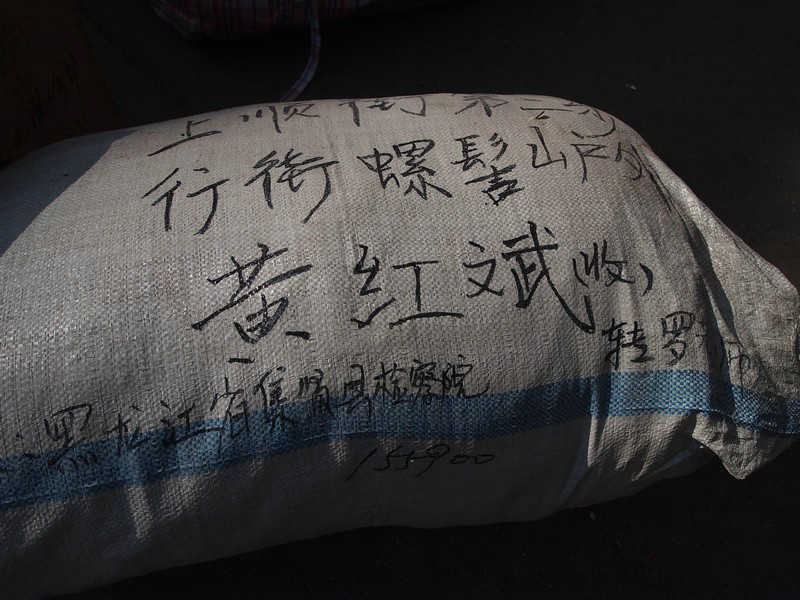 上顺街第二步
行街螺髻山户外
黄红斌(收)
转罗 师
黑龙江省集贤县检察院
155900